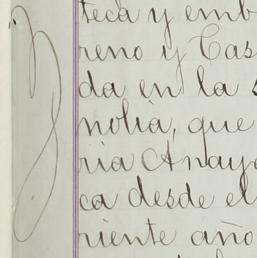 teca y emb
reno y Cas
da en la s
nolia, que
ria Anaya
ca desde el
riente año